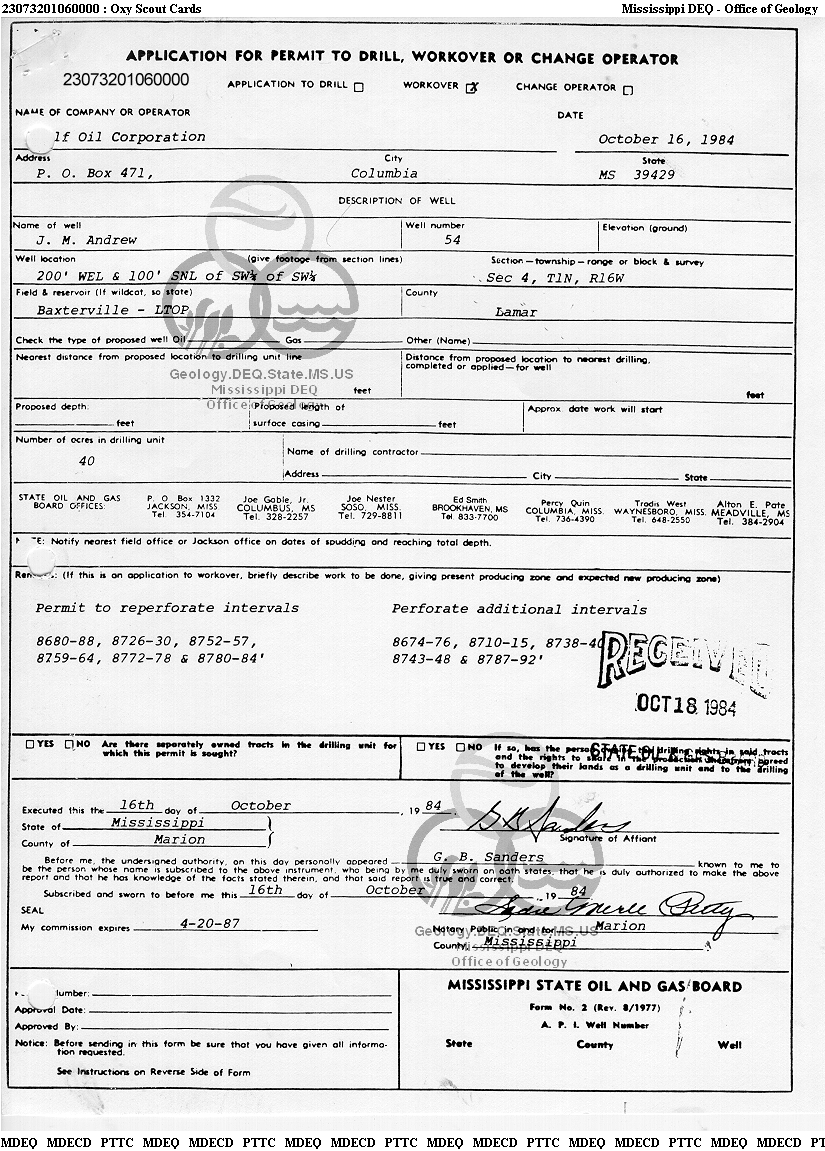 23073201060000 : Oxy Scout Cards Mississippi DEQ - Office of Geology
APPLICATION FOR PERMIT TO DRILL, WORKOVER OR CHANGE OPERATOR
23073201060000 APPLICATION TO DRILL WORKOVER X CHANGE OPERATOR
NAME OF COMPANY OR OPERATOR DATE
lf Oil Corporation October 16, 1984
Address City State
P. O. Box 471, Columbia MS 39429
DESCRIPTION OF WELL
Name of well Well number Elevation (ground)
J. M. Andrew 54
Well location (give footage from section lines) Section—township—range or block & survey
200' WEL & 100' SNL of SW¼ of SW¼ Sec 4, T1N, R16W
Field & reservoir (If wildcat, so state) County
Baxterville - LTOP Lamar
Check the type of proposed well Oil Gas Other (Name)
Nearest distance from proposed location to drilling unit line Distance from proposed location to nearest drilling,
completed or applied—for well
feet feet
Geology.DEQ.State.MS.US
Mississippi DEQ
Office of Geology
Proposed depth: Proposed length of Approx. date work will start
feet surface casing feet
Number of acres in drilling unit Name of drilling contractor
40
Address City State
STATE OIL AND GAS P. O Box 1332 Joe Gable, Jr. Joe Nester Ed Smith Percy Quin Trodis West Alton E. Pate
BOARD OFFICES: JACKSON, MISS. COLUMBUS, MS SOSO, MISS. BROOKHAVEN, MS COLUMBIA, MISS. WAYNESBORO, MISS. MEADVILLE, MS
Tel. 354-7104 Tel. 328-2257 Tel. 729-8811 Tel 833-7700 Tel. 736-4390 Tel. 648-2550 Tel. 384-2904
E: Notify nearest field office or Jackson office on dates of spudding and reaching total depth.
Rem s: (If this is an application to workover, briefly describe work to be done, giving present producing zone and expected new producing zone)
Permit to reperforate intervals Perforate additional intervals
8680-88, 8726-30, 8752-57, 8674-76, 8710-15, 8738-40
8759-64, 8772-78 & 8780-84' 8743-48 & 8787-92'
RECEIVED
OCT 18 1984
YES NO Are there separately owned tracts in the drilling unit for which this permit is sought?
YES NO If so, has the person owning the drilling rights in said tracts
and the rights to share in the production therefrom agreed
to develop their lands as a drilling unit and to the drilling
of the well?
Executed this the 16th day of October, 19 84. G B Sanders
State of Mississippi Signature of Affiant
County of Marion
Before me, the undersigned authority, on this day personally appeared G. B. Sanders known to me to
be the person whose name is subscribed to the above instrument, who being by me duly sworn on oath states, that he is duly authorized to make the above
report and that he has knowledge of the facts stated therein, and that said report is true and correct.
Subscribed and sworn to before me this 16th day of October, 19 84
SEAL Merle Petty
My commission expires 4-20-87 Notary Public in and for Marion
County, Mississippi
Geology.DEQ.State.MS.US
Mississippi DEQ
Office of Geology
Number: MISSISSIPPI STATE OIL AND GAS BOARD
Approval Date: Form No. 2 (Rev. 8/1977)
Approved By: A. P. I. Well Number
Notice: Before sending in this form be sure that you have given all informa- State County Well
tion requested.
See Instructions on Reverse Side of Form
MDEQ MDECD PTTC MDEQ MDECD PTTC MDEQ MDECD PTTC MDEQ MDECD PTTC MDEQ MDECD PTTC MDEQ MDECD PT